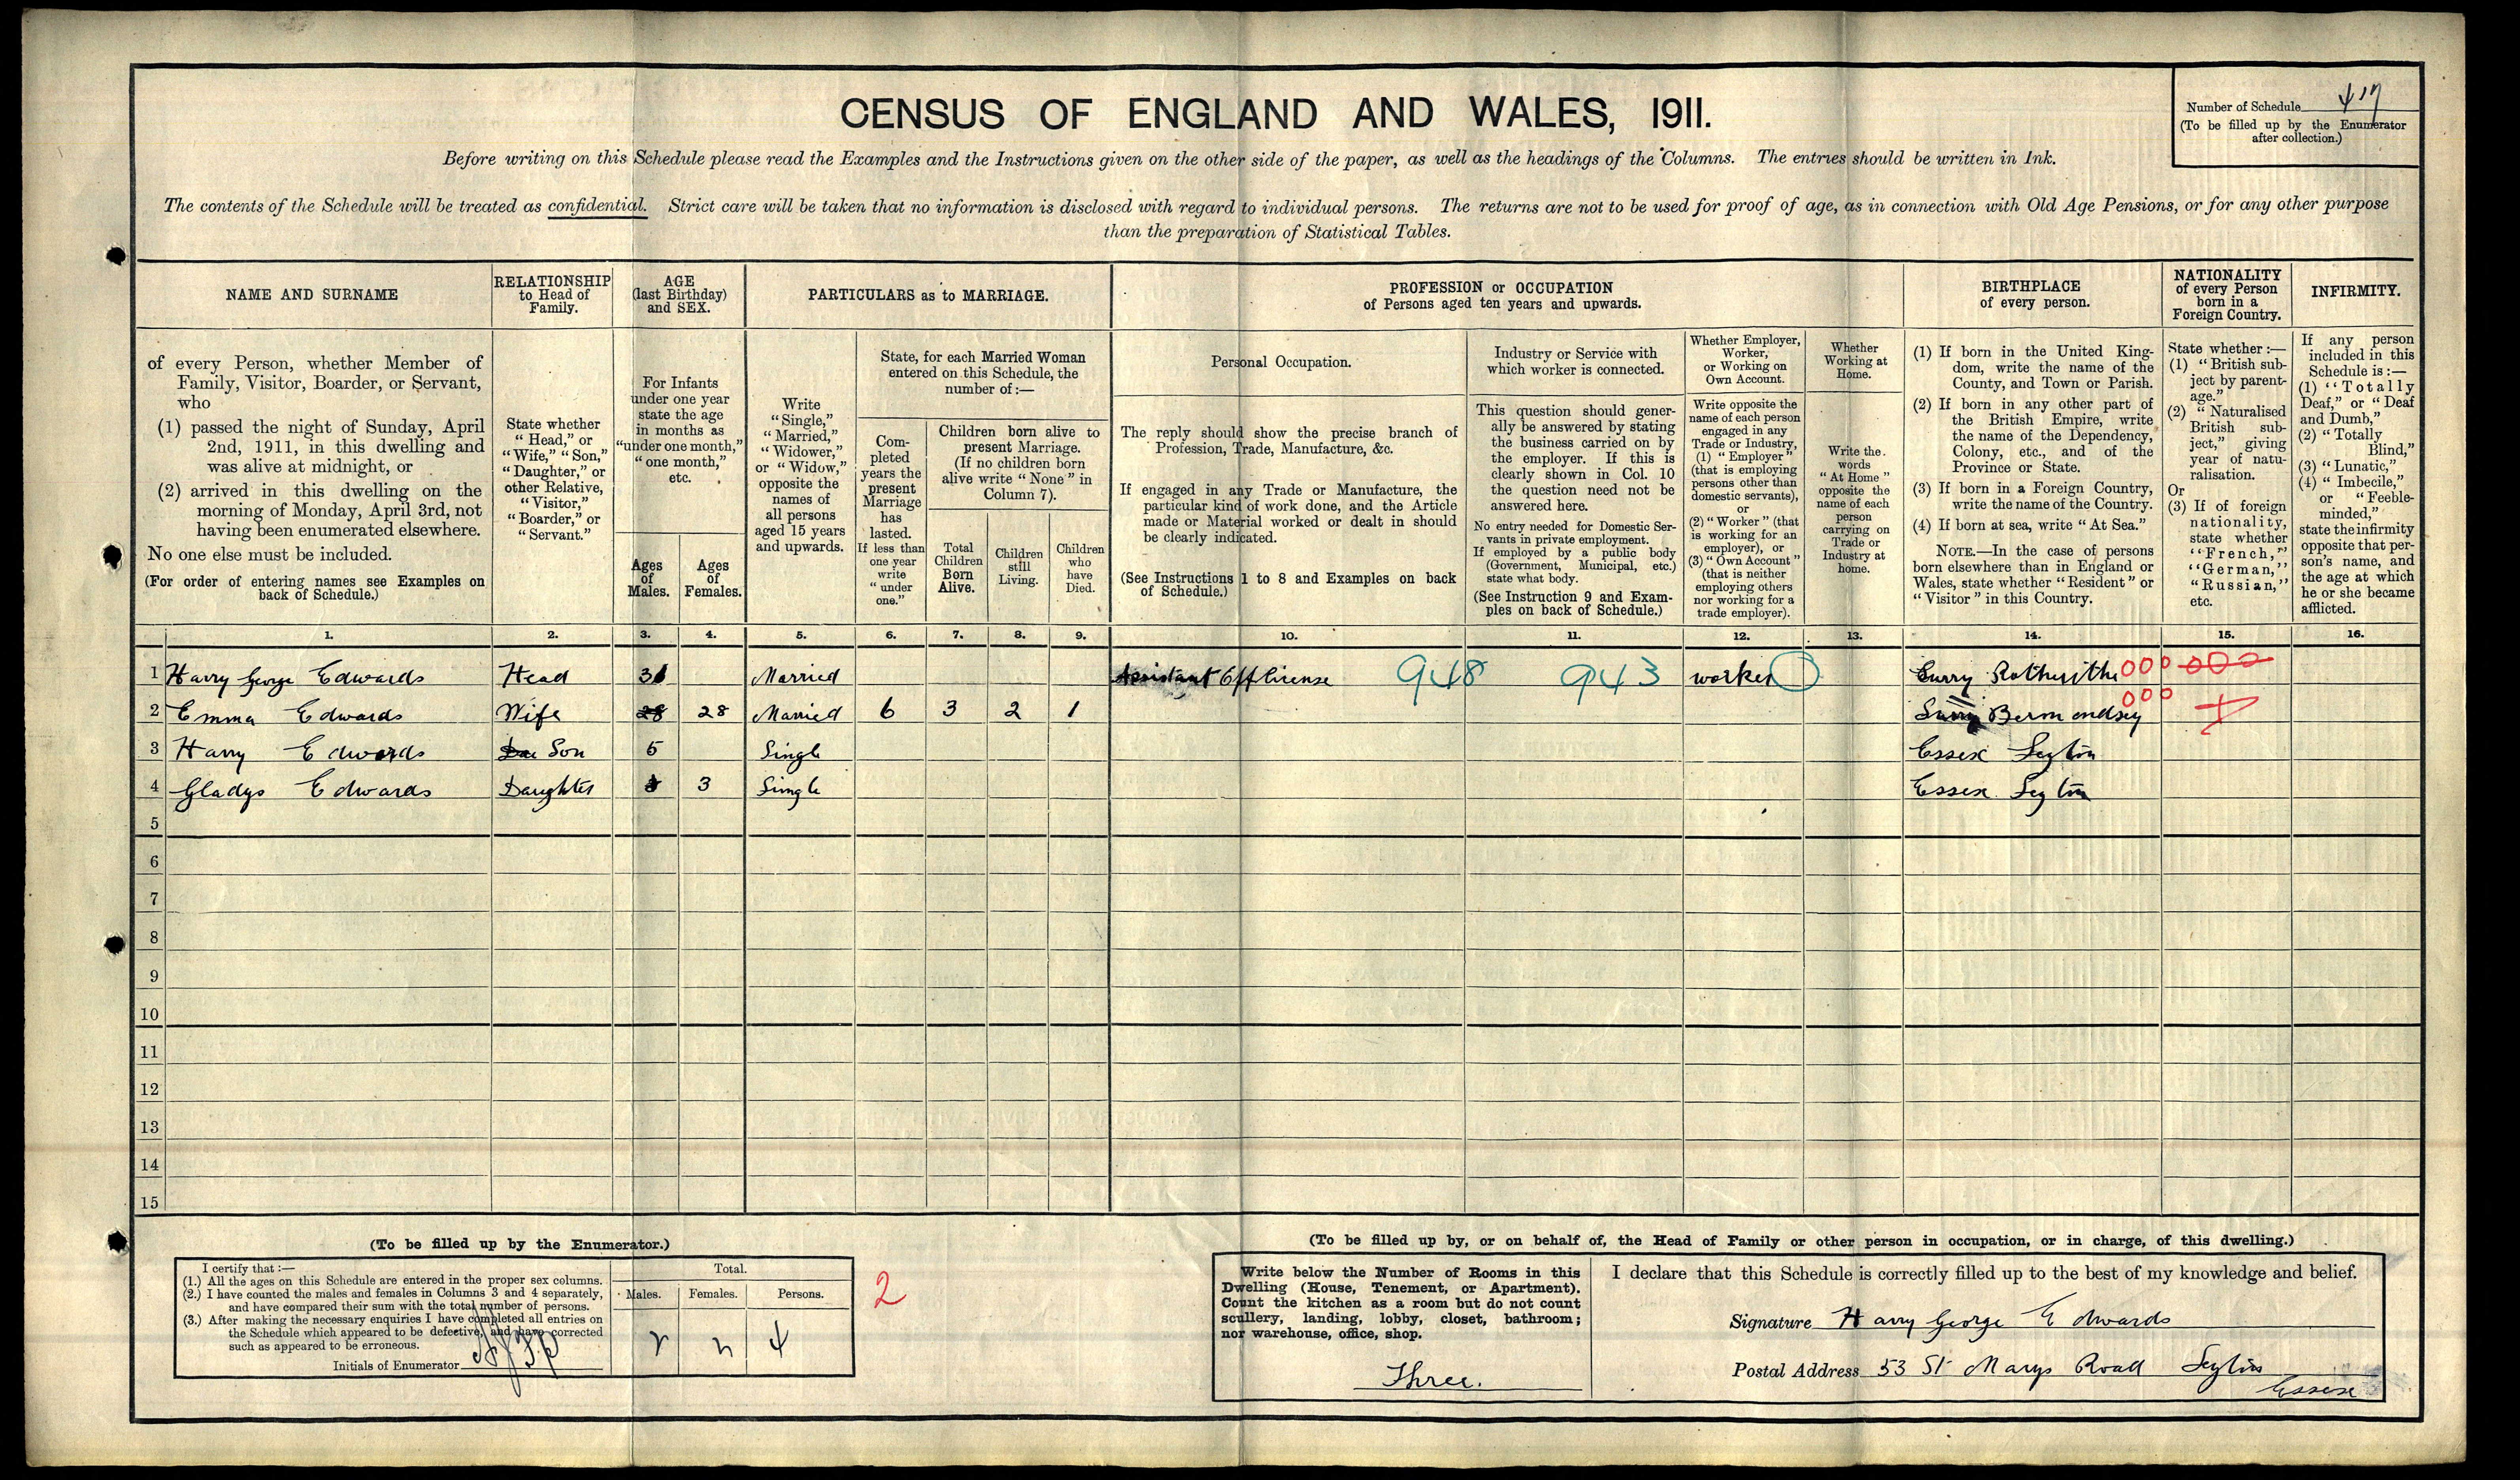 CENSUS OF ENGLAND AND WALES, 1911.
Number of Schedule 417
(To be filled up by the Enumerator
after collection.)
Before writing on this Schedule please read the Examples and the Instructions given on the other side of the paper, as well as the headings of the Columns. The entries should be written in Ink.
The contents of the Schedule will be treated as confidential. Strict care will be taken that no information is disclosed with regard to individual persons. The returns are not to be used for proof of age, as in connection with Old Age Pensions, or for any other purpose
than the preparation of Statistical Tables.
NAME AND SURNAME
of every Person, whether Member of
Family, Visitor, Boarder, or Servant,
who
(1) passed the night of Sunday, April
2nd, 1911, in this dwelling and
was alive at midnight, or
(2) arrived in this dwelling on the
morning of Monday, April 3rd, not
having been enumerated elsewhere.
No one else must be included.
(For order of entering names see Examples on
back of Schedule.)
RELATIONSHIP
to Head of
Family.
State whether
"Head," or
"Wife," "Son,"
"Daughter," or
other Relative,
"Visitor,"
"Boarder," or
"Servant."
AGE
(last Birthday)
and SEX.
For Infants
under one year
state the age
in months as
"under one month,"
"one month,"
etc.
Ages
of
Males.
Ages
of
Females.
PARTICULARS as to MARRIAGE.
Write
"Single,"
"Married,"
"Widower,"
or "Widow,"
opposite the
names of
all persons
aged 15 years
and upwards.
State, for each Married Woman
entered on this Schedule, the
number of:—
Com-
pleted
years the
present
Marriage
has
lasted.
If less than
one year
write
"under
one."
Children born alive to
present Marriage.
(If no children born
alive write "None" in
Column 7).
Total
Children
Born
Alive.
Children
still
Living.
Children
who
have
Died.
PROFESSION or OCCUPATION
of Persons aged ten years and upwards.
Personal Occupation.
The reply should show the precise branch of
Profession, Trade, Manufacture, &c.
If engaged in any Trade or Manufacture, the
particular kind of work done, and the Article
made or Material worked or dealt in should
be clearly indicated.
(See Instructions 1 to 8 and Examples on back
of Schedule.)
Industry or Service with
which worker is connected.
This question should gener-
ally be answered by stating
the business carried on by
the employer. If this is
clearly shown in Col. 10
the question need not be
answered here.
No entry needed for Domestic Ser-
vants in private employment.
If employed by a public body
(Government, Municipal, etc.)
state what body.
(See Instruction 9 and Exam-
ples on back of Schedule.)
Whether Employer,
Worker,
or Working on
Own Account.
Write opposite the
name of each person
engaged in any
Trade or Industry,
(1) "Employer"
(that is employing
persons other than
domestic servants),
or
(2) "Worker" (that
is working for an
employer), or
(3) "Own Account"
(that is neither
employing others
nor working for a
trade employer).
Whether
Working at
Home.
Write the
words
"At Home"
opposite the
name of each
person
carrying on
Trade or
Industry at
home.
BIRTHPLACE
of every person.
(1) If born in the United King-
dom, write the name of the
County, and Town or Parish.
(2) If born in any other part of
the British Empire, write
the name of the Dependency,
Colony, etc., and of the
Province or State.
(3) If born in a Foreign Country,
write the name of the Country.
(4) If born at sea, write "At Sea."
NOTE.—In the case of persons
born elsewhere than in England or
Wales, state whether "Resident" or
"Visitor" in this Country.
NATIONALITY
of every Person
born in a
Foreign Country.
State whether :—
(1) "British sub-
ject by parent-
age."
(2) "Naturalised
British sub-
ject," giving
year of natu-
ralisation.
Or
(3) If of foreign
nationality,
state whether
"French,"
"German,"
"Russian,"
etc.
INFIRMITY.
If any person
included in this
Schedule is:—
(1) "Totally
Deaf," or "Deaf
and Dumb,"
(2) "Totally
Blind,"
(3) "Lunatic,"
(4) "Imbecile,"
or "Feeble-
minded,"
state the infirmity
opposite that per-
son's name, and
the age at which
he or she became
afflicted.
1. 2. 3. 4. 5. 6. 7. 8. 9. 10. 11. 12. 13. 14. 15. 16.
1 Harry George Edwards Head 31 Married Assistant Off License 948 943 worker Surry Rotherithe 000 000
2 Emma Edwards Wife 28 28 Married 6 3 2 1 Surry Bermondsey 000
3 Harry Edwards Son 5 Single Essex Leyton
4 Gladys Edwards Daughter 3 Single Essex Leyton
5
6
7
8
9
10
11
12
13
14
15
(To be filled up by the Enumerator.)
I certify that:—
(1.) All the ages on this Schedule are entered in the proper sex columns.
(2.) I have counted the males and females in Columns 3 and 4 separately,
and have compared their sum with the total number of persons.
(3.) After making the necessary enquiries I have completed all entries on
the Schedule which appeared to be defective, and have corrected
such as appeared to be erroneous.
Initials of Enumerator
Total.
Males. Females. Persons.
2 2 4
2
(To be filled up by, or on behalf of, the Head of Family or other person in occupation, or in charge, of this dwelling.)
Write below the Number of Rooms in this
Dwelling (House, Tenement, or Apartment).
Count the kitchen as a room but do not count
scullery, landing, lobby, closet, bathroom;
nor warehouse, office, shop.
Three.
I declare that this Schedule is correctly filled up to the best of my knowledge and belief.
Signature Harry George Edwards
Postal Address 53 St Marys Road Leyton
Essex